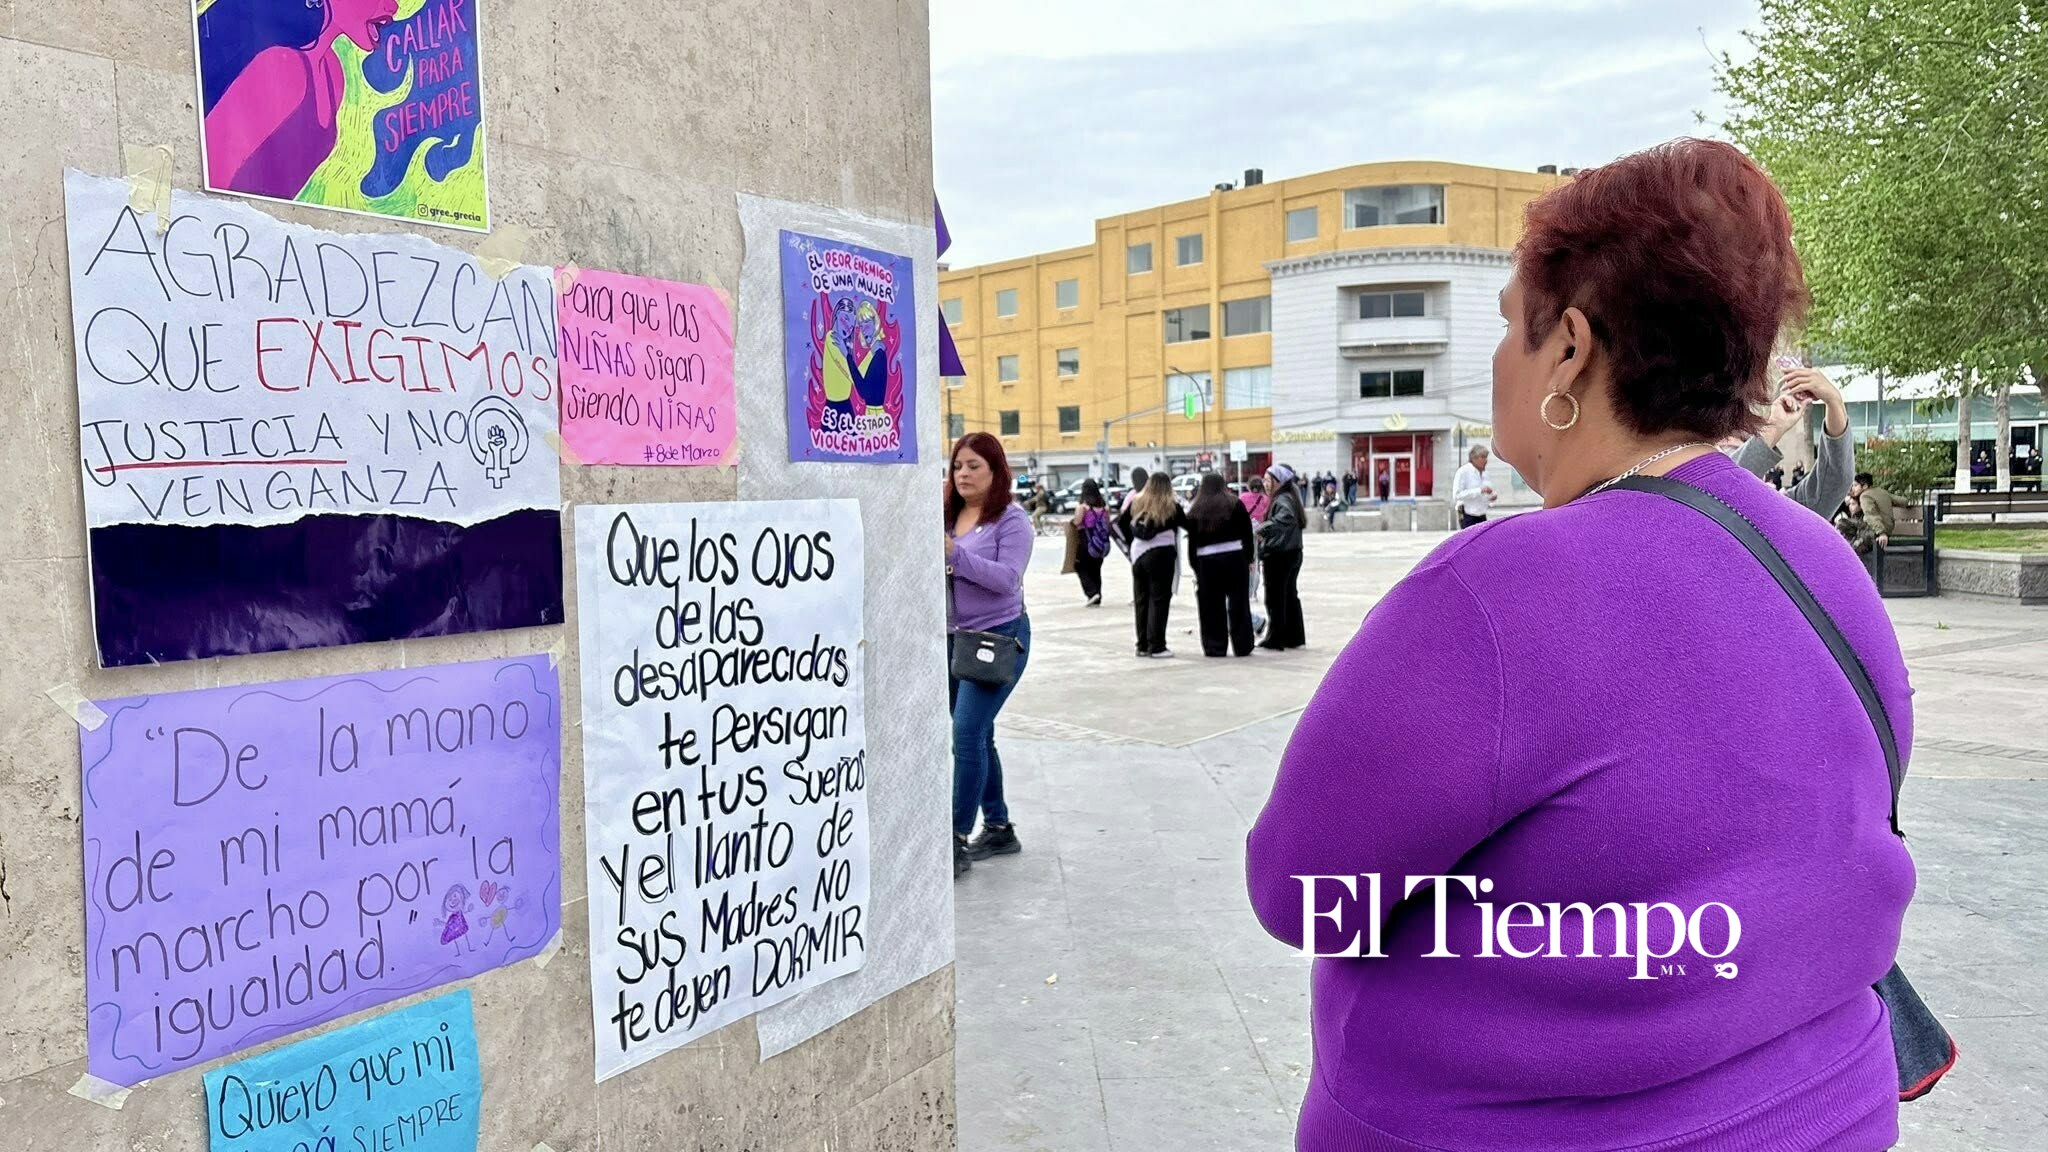 CALLAR
PARA
SIEMPRE
gree_grecia
AGRADEZCAN
QUE EXIGIMOS
JUSTICIA Y NO
VENGANZA
Para que las
NIÑAS sigan
siendo NIÑAS
#8deMarzo
EL PEOR ENEMIGO
DE UNA MUJER
ES EL ESTADO
VIOLENTADOR
Que los ojos
de las
desaparecidas
te persigan
en tus sueños
y el llanto de
sus Madres NO
te dejen DORMIR
"De la mano
de mi mamá,
marcho por la
igualdad."
Quiero que mi
SIEMPRE
El Tiempo
MX